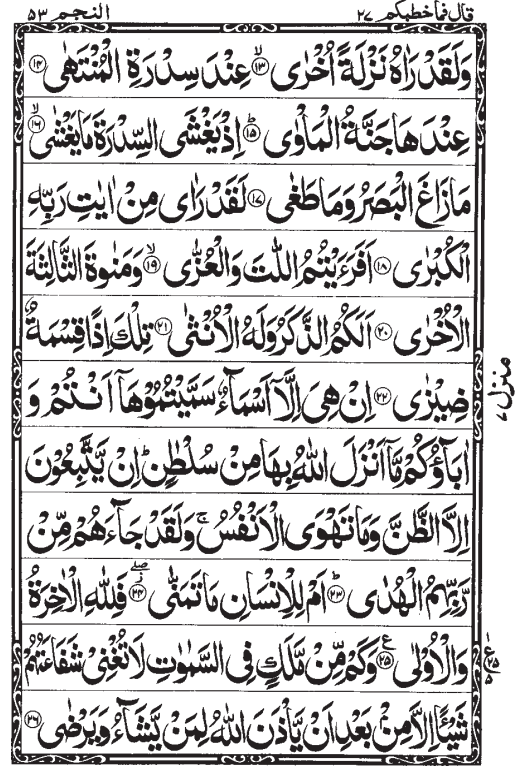 قال فما خطبكم ٢٧ النجم ٥٣
وَلَقَدْ رَاٰهُ نَزْلَةً اُخْرٰى ﴿١٣﴾ۙ عِنْدَ سِدْرَةِ الْمُنْتَهٰى ﴿١٤﴾
عِنْدَهَا جَنَّةُ الْمَاْوٰى ﴿١٥﴾ؕ اِذْ يَغْشَى السِّدْرَةَ مَا يَغْشٰى ﴿١٦﴾ۙ
مَا زَاغَ الْبَصَرُ وَمَا طَغٰى ﴿١٧﴾ لَقَدْ رَاٰى مِنْ اٰيٰتِ رَبِّهِ
الْكُبْرٰى ﴿١٨﴾ اَفَرَءَيْتُمُ اللّٰتَ وَالْعُزّٰى ﴿١٩﴾ۙ وَمَنٰوةَ الثَّالِثَةَ
الْاُخْرٰى ﴿٢٠﴾ اَلَكُمُ الذَّكَرُ وَلَهُ الْاُنْثٰى ﴿٢١﴾ تِلْكَ اِذًا قِسْمَةٌ
ضِيْزٰى ﴿٢٢﴾ اِنْ هِىَ اِلَّاۤ اَسْمَآءٌ سَمَّيْتُمُوْهَاۤ اَنْتُمْ وَ
اٰبَآؤُكُمْ مَّاۤ اَنْزَلَ اللّٰهُ بِهَا مِنْ سُلْطٰنٍؕ اِنْ يَّتَّبِعُوْنَ
اِلَّا الظَّنَّ وَمَا تَهْوَى الْاَنْفُسُۚ وَلَقَدْ جَآءَهُمْ مِّنْ
رَّبِّهِمُ الْهُدٰى ﴿٢٣﴾ؕ اَمْ لِلْاِنْسَانِ مَا تَمَنّٰى ﴿٢٤﴾ۖ فَلِلّٰهِ الْاٰخِرَةُ
وَالْاُوْلٰى ﴿٢٥﴾ وَكَمْ مِّنْ مَّلَكٍ فِى السَّمٰوٰتِ لَا تُغْنِىْ شَفَاعَتُهُمْ
شَيْئًا اِلَّا مِنْۢ بَعْدِ اَنْ يَّاْذَنَ اللّٰهُ لِمَنْ يَّشَآءُ وَيَرْضٰى ﴿٢٦﴾
منزل ٧